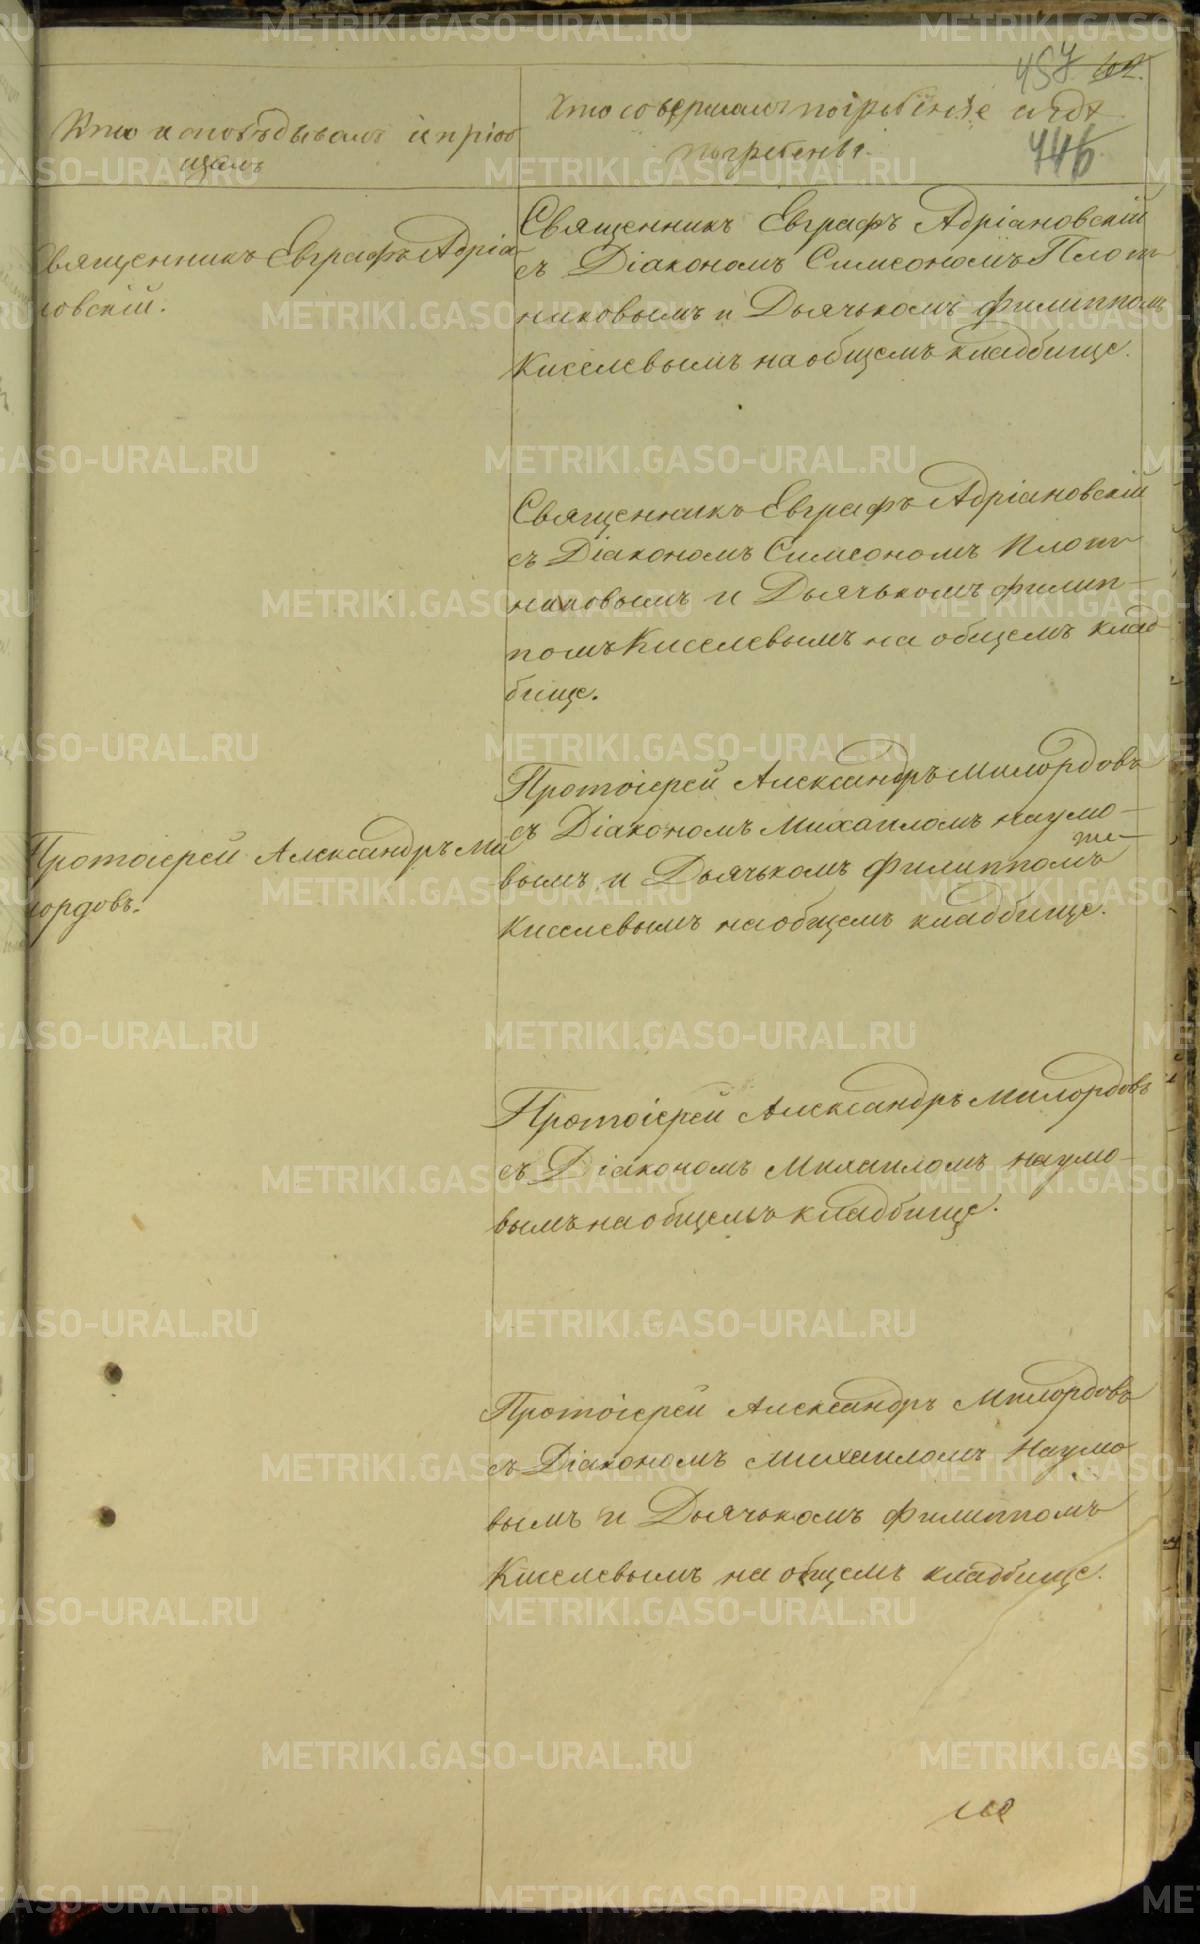 457 602.
446
Кто исповѣдывалъ и пріоб
щалъ
Кто совершалъ погребеніе и гдѣ
погребены.
Священникъ Евграфъ Адріа
новскій.
Священникъ Евграфъ Адріановскій
съ Діакономъ Симеономъ Плот
никовымъ и Дьячькомъ Филиппомъ
Киселевымъ на общемъ кладбище.
Священникъ Евграфъ Адріановскій
съ Діакономъ Симеономъ Плот
никовымъ и Дьячькомъ Филип-
помъ Киселевымъ на общемъ клад
бище.
Протоіерей Александръ Ми
лордовъ.
Протоіерей Александръ Милордовъ
съ Діакономъ Михаиломъ Наумо-
вымъ и Дьячькомъ Филиппомъ
Киселевымъ на общемъ кладбище.
Протоіерей Александръ Милордовъ
съ Діакономъ Михаиломъ Наумо-
вымъ на общемъ кладбище.
Протоіерей Александръ Милордовъ
съ Діакономъ Михаиломъ Наумо
вымъ и Дьячькомъ Филиппомъ
Киселевымъ на общемъ кладбище.
METRIKI.GASO-URAL.RU